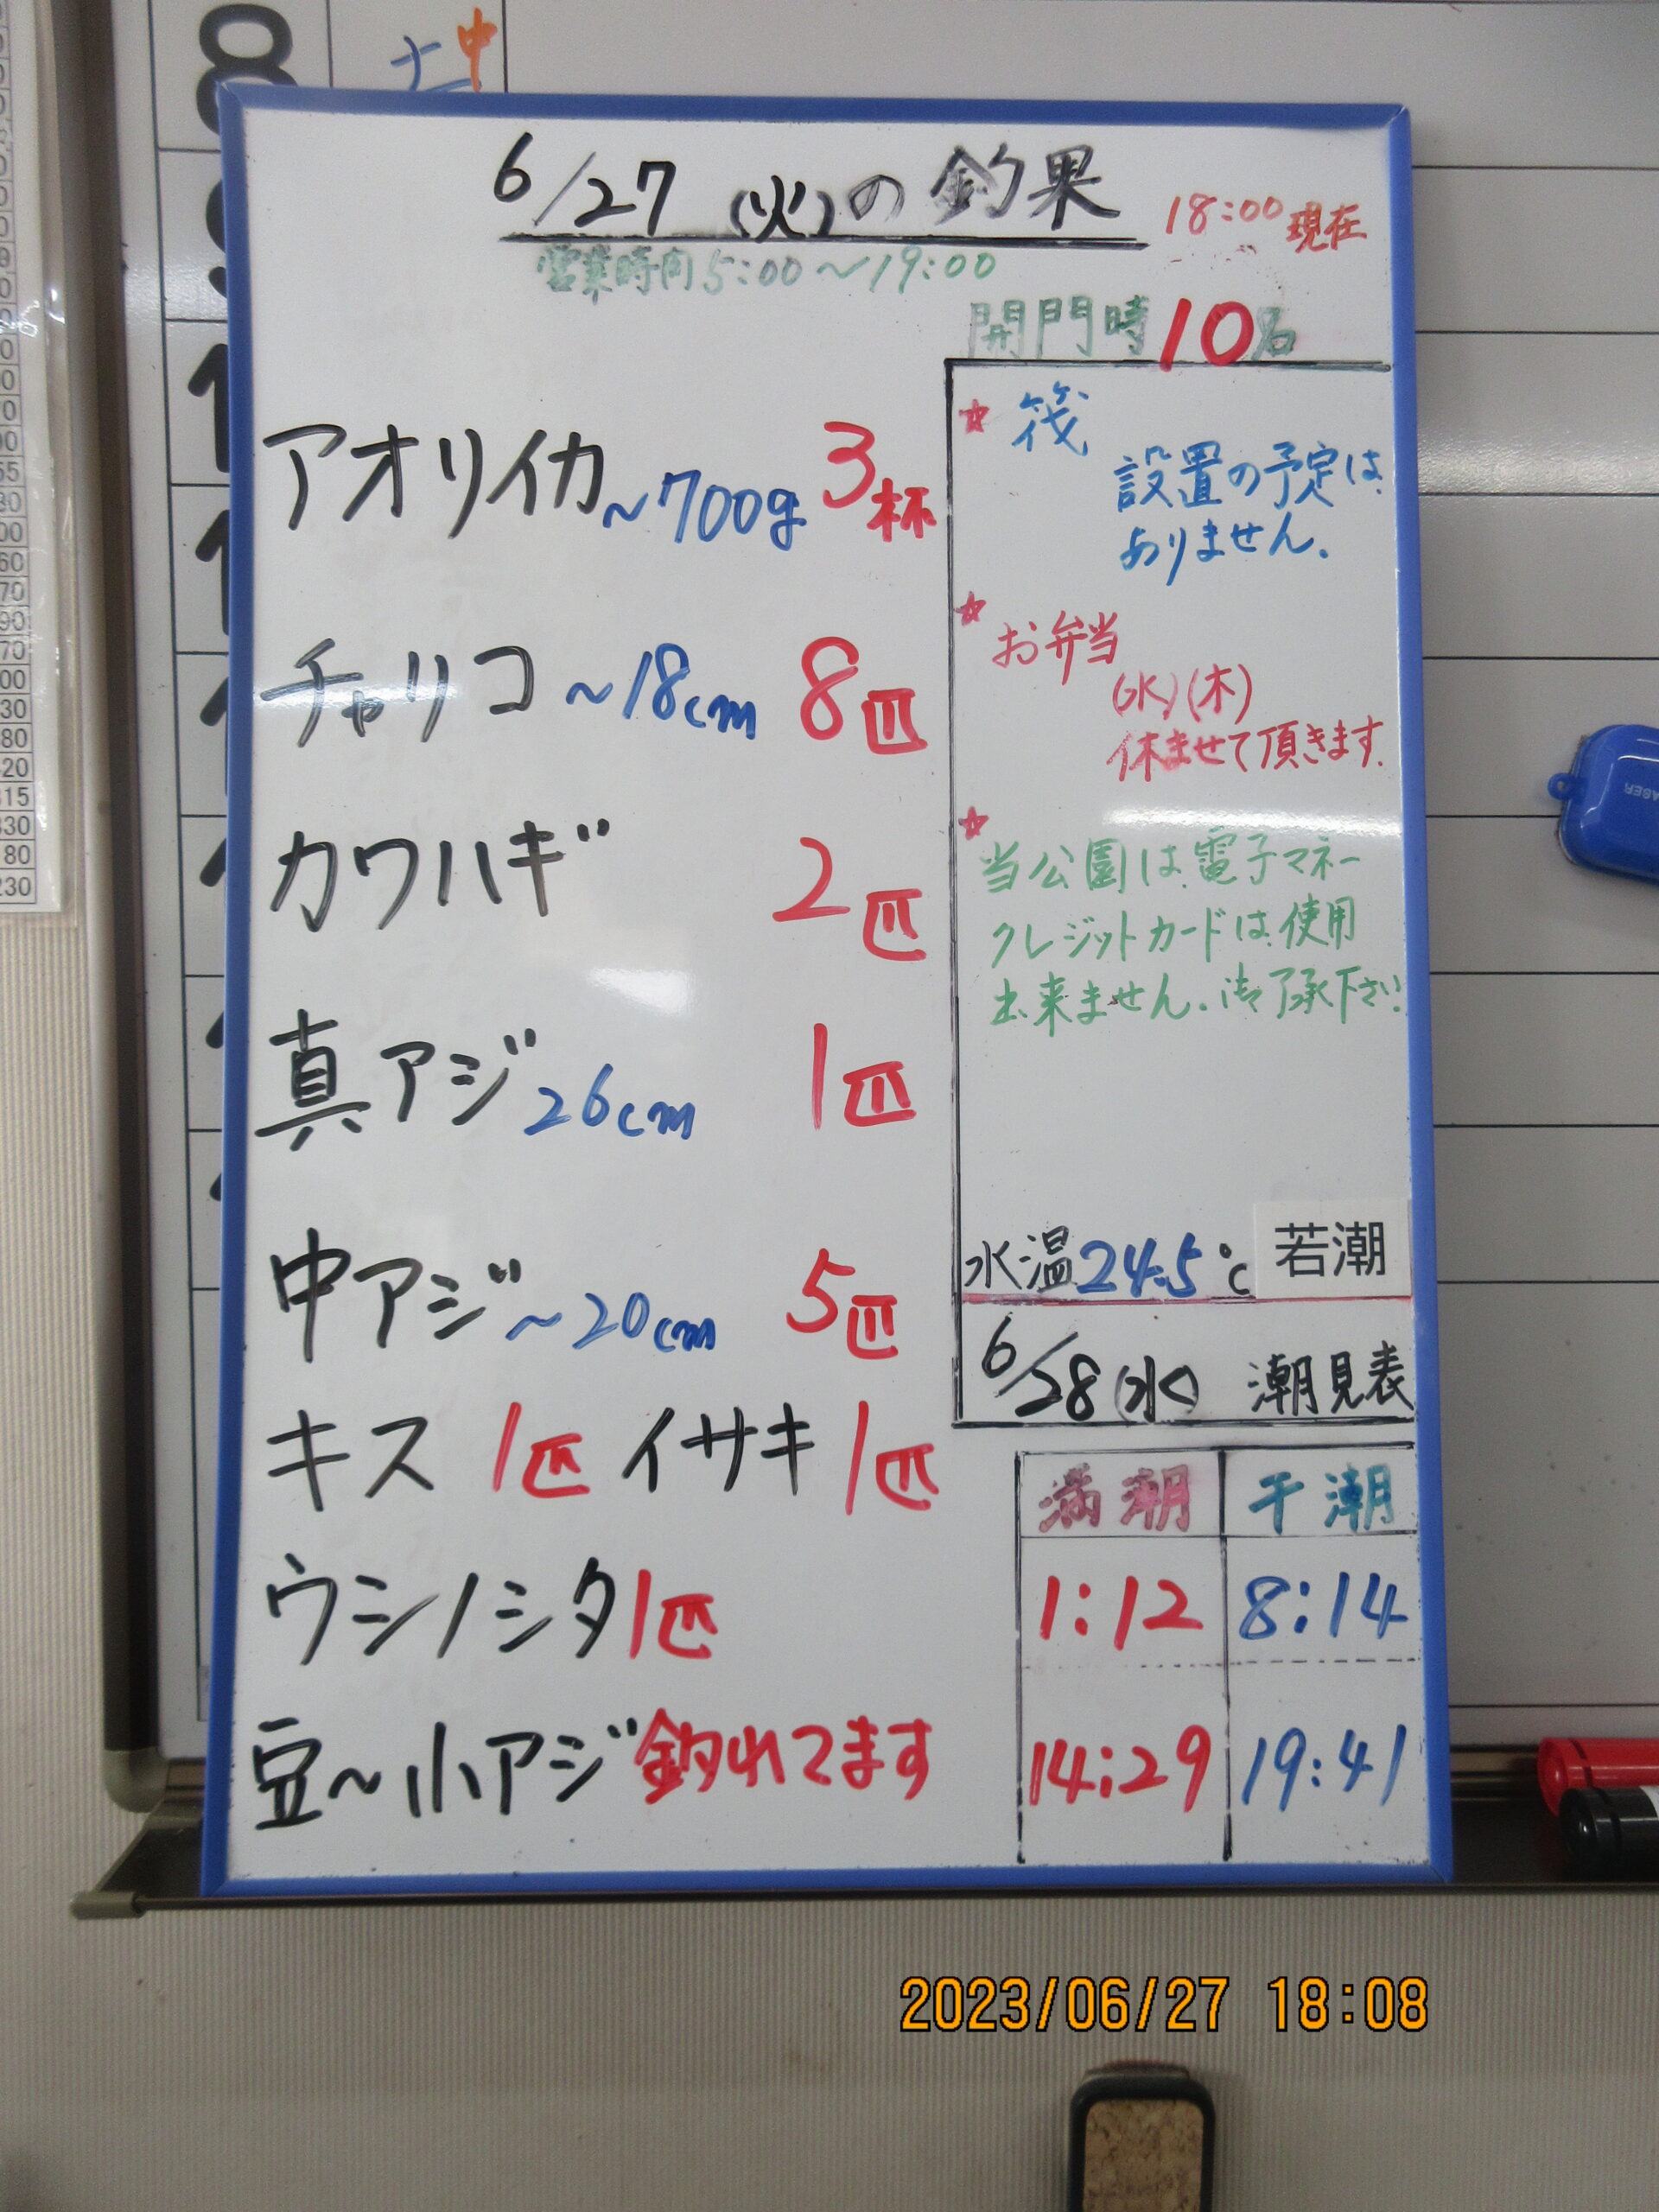 8 中
6/27 (火)の釣果 18:00現在
営業時間5:00〜19:00
開門時10名
アオリイカ〜700g 3杯
チャリコ〜18cm 8匹
カワハギ 2匹
真アジ26cm 1匹
中アジ〜20cm 5匹
キス 1匹 イサキ 1匹
ウシノシタ1匹
豆〜小アジ釣れてます
☆筏
設置の予定は
ありません.
☆お弁当
(水)(木)
休ませて頂きます.
☆当公園は電子マネー
クレジットカードは使用
出来ません.御了承下さい
水温24.5℃ 若潮
6/28(水) 潮見表
満潮 干潮
1:12 8:14
14:29 19:41
2023/06/27 18:08